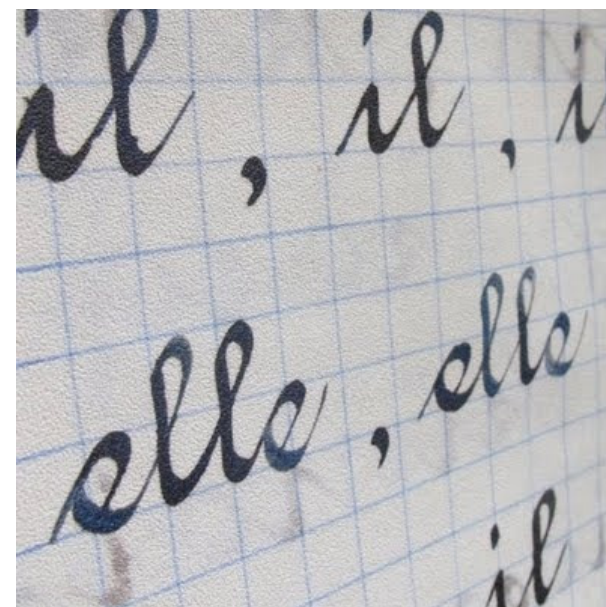 il, il, i
elle, elle
il